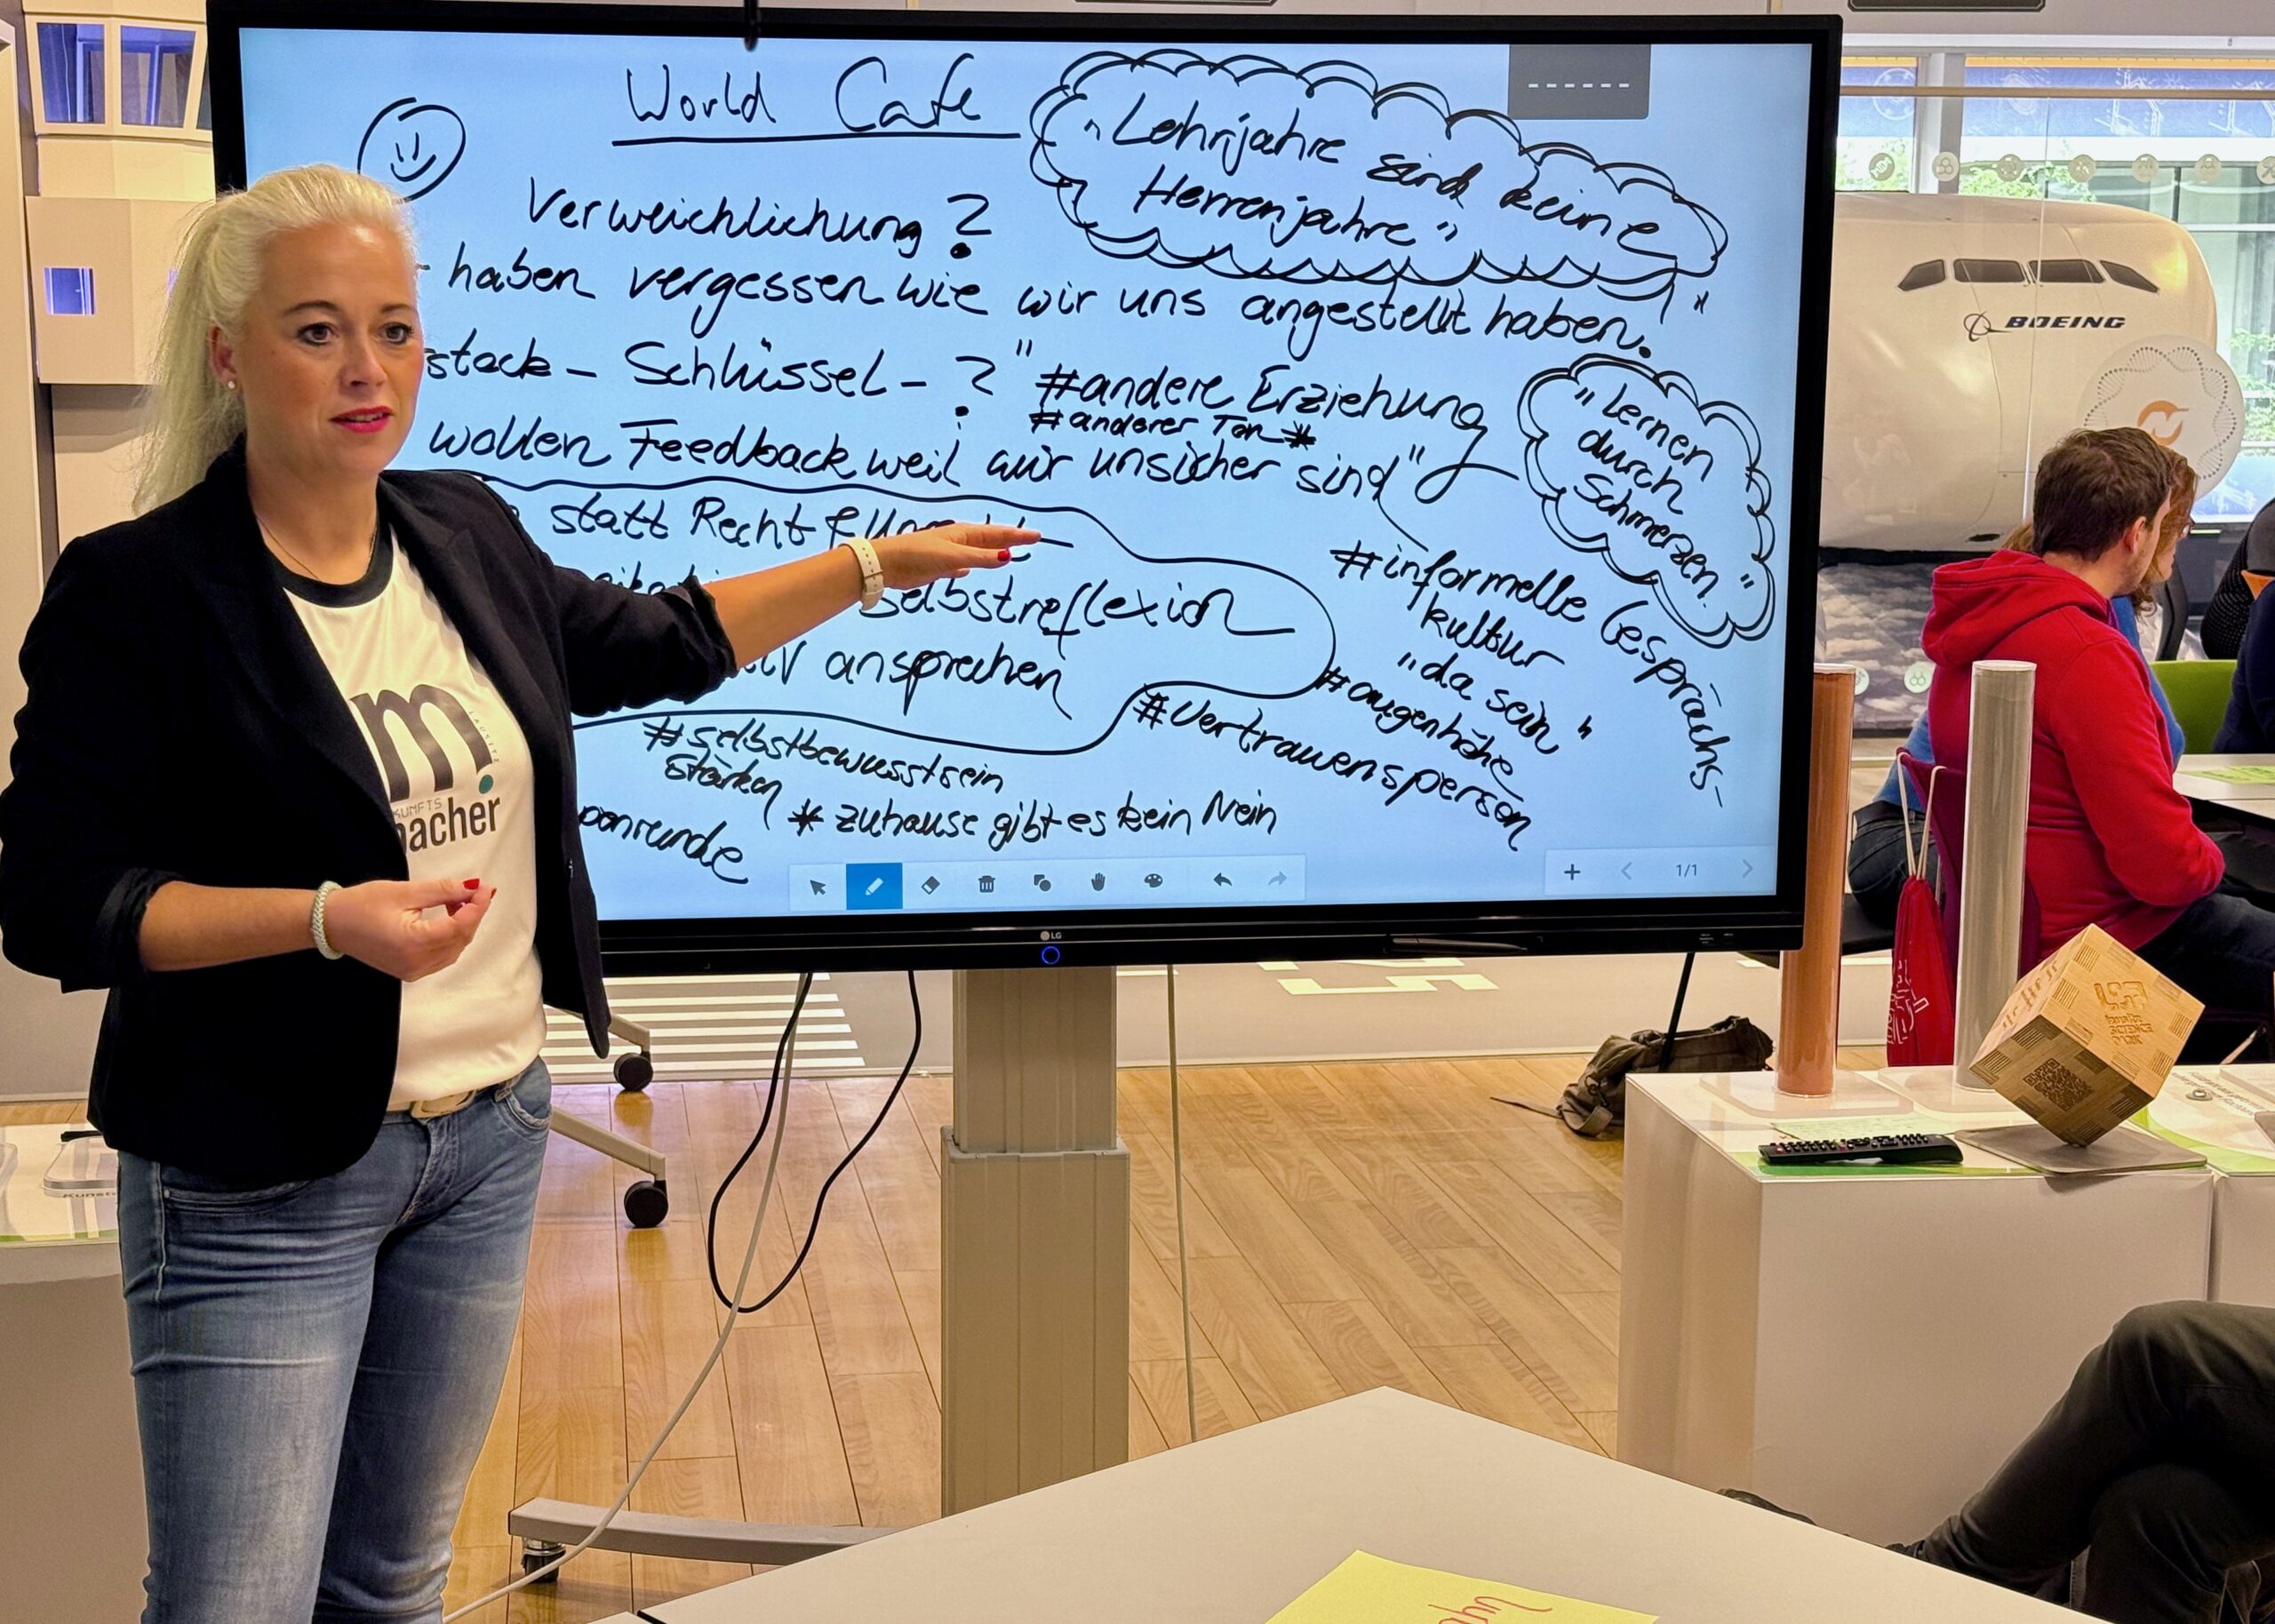 World Cafe
"Lehrjahre sind keine
Herrenjahre"
Verweichlichung?
haben vergessen wie wir uns angestellt haben."
stock - Schlüssel - ?" #andere Erziehung
#anderer Ton *
wollen Feedback weil wir unsicher sind"
"Lernen
durch
Schmerzen"
statt Recht
Selbstreflexion
ansprechen
#informelle Gesprächs-
kultur
"da sein"
#augenhöhe
#Vertrauensperson
#selbstbewusstsein
stärken
* zuhause gibt es kein Nein
1/1
LG
BOEING
m
LAUSITZ
KUNFTS
acher
SCIENCE